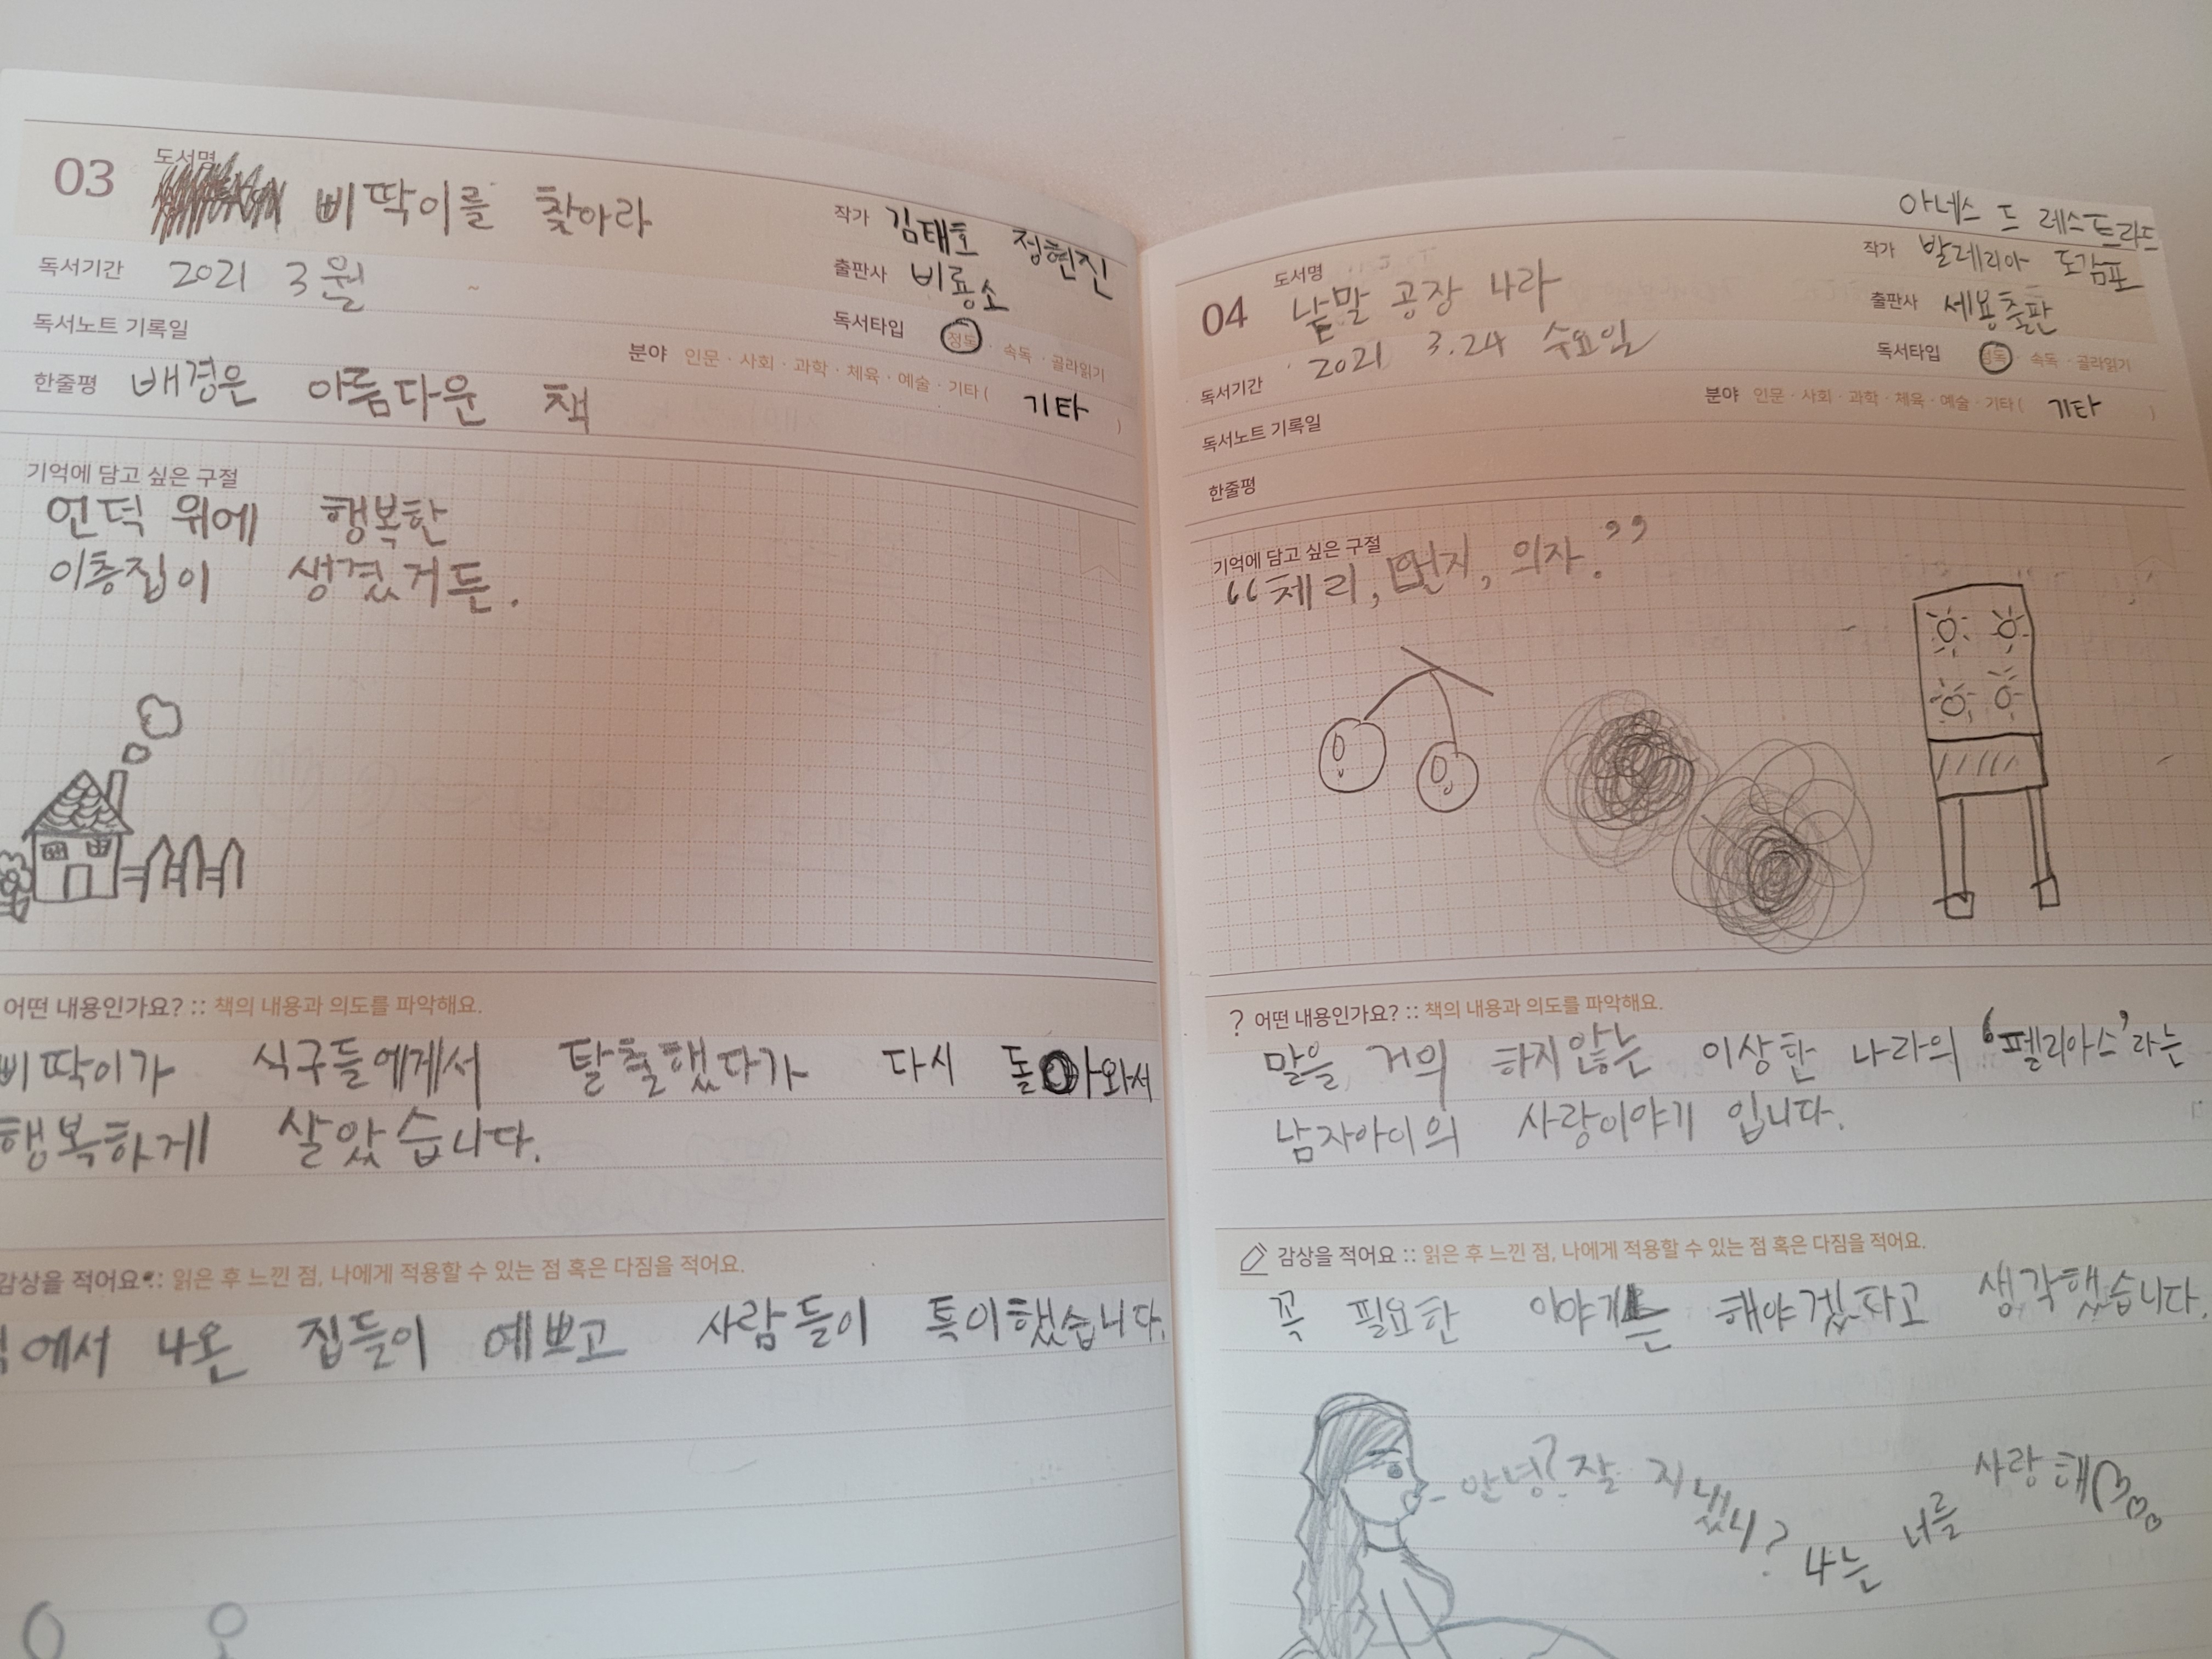 03
도서명
삐딱이를 찾아라
작가 김태호 정현진
독서기간 2021 3월
출판사 비룡소
독서노트 기록일
독서타임 정독 · 속독 · 골라읽기
분야 인문 · 사회 · 과학 · 체육 · 예술 · 기타 ( 기타 )
한줄평 배경은 아름다운 책
기억에 담고 싶은 구절
언덕 위에 행복한
이층집이 생겼거든.
어떤 내용인가요? :: 책의 내용과 의도를 파악해요.
삐딱이가 식구들에게서 탈출했다가 다시 돌아와서
행복하게 살았습니다.
감상을 적어요 :: 읽은 후 느낀 점, 나에게 적용할 수 있는 점 혹은 다짐을 적어요.
에서 나온 집들이 예쁘고 사람들이 특이했습니다.
04
도서명
낱말 공장 나라
아네스 드 레스트라드
작가 발레리아 도캄포
독서기간 2021. 3. 24 수요일
출판사 세용출판
독서노트 기록일
독서타임 정독 · 속독 · 골라읽기
분야 인문 · 사회 · 과학 · 체육 · 예술 · 기타 ( 기타 )
한줄평
기억에 담고 싶은 구절
“체리, 먼지, 의자.”
? 어떤 내용인가요? :: 책의 내용과 의도를 파악해요.
말을 거의 하지않는 이상한 나라의 '필레아스'라는
남자아이의 사랑이야기 입니다.
감상을 적어요 :: 읽은 후 느낀 점, 나에게 적용할 수 있는 점 혹은 다짐을 적어요.
꼭 필요한 이야기는 해야겠다고 생각했습니다.
안녕? 잘 지냈니?
나는 너를 사랑해